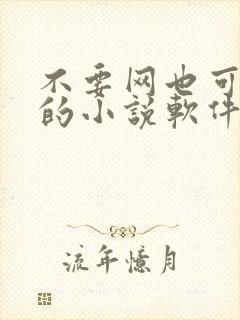 不要网也可
的小説軟件
流年憶月